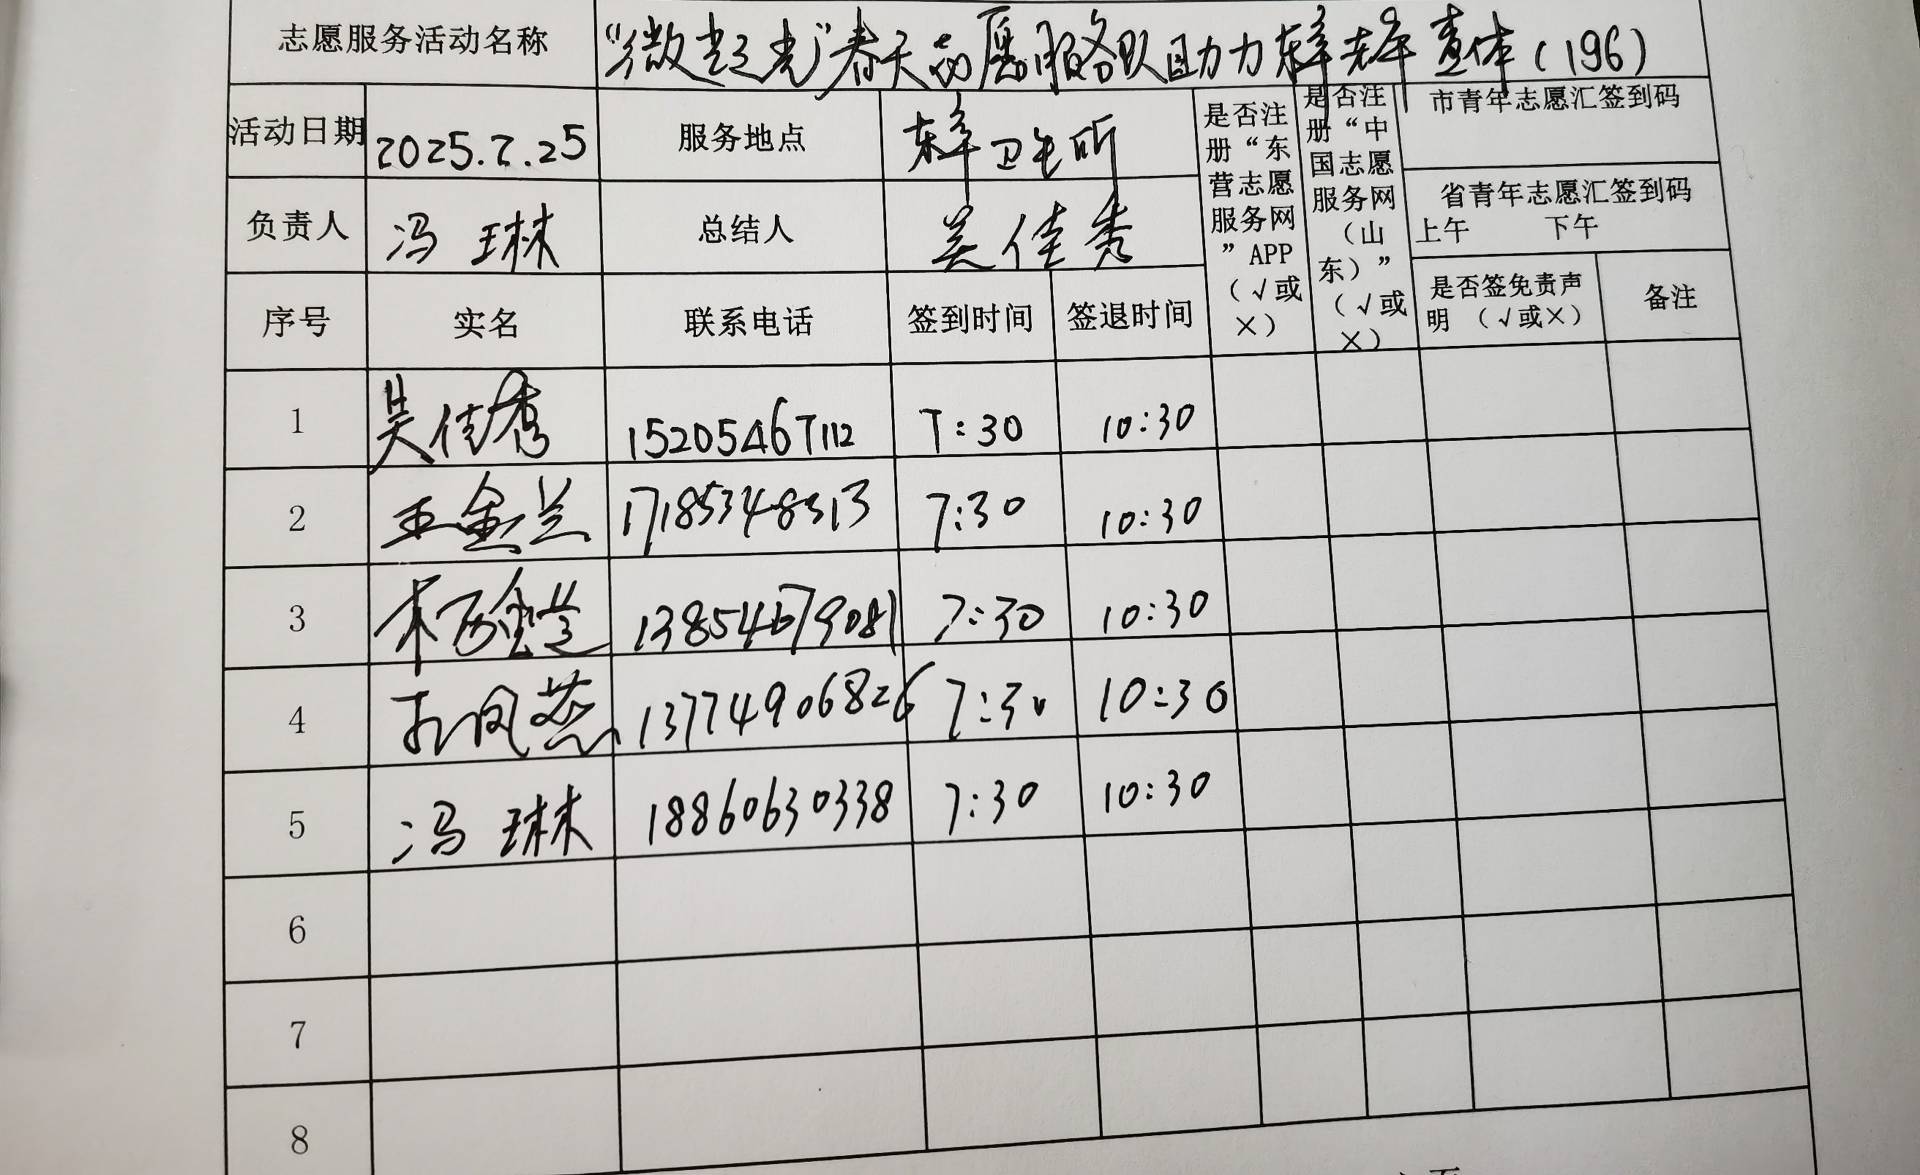 志愿服务活动名称 “微起光”春天志愿服务队助力东辛老年查体(196)
活动日期 2025.7.25 服务地点 东辛卫生所 是否注册“东营志愿服务网”APP（√或×） 是否注册“中国志愿服务网（山东）”（√或×） 市青年志愿汇签到码
省青年志愿汇签到码
上午 下午
负责人 冯琳 总结人 吴佳秀
序号 实名 联系电话 签到时间 签退时间 是否签免责声明（√或×） 备注
1 吴佳秀 15205467112 7:30 10:30
2 王金兰 17185348313 7:30 10:30
3 13854679081 7:30 10:30
4 凤燕 13774906826 7:30 10:30
5 冯琳 18860630338 7:30 10:30
6
7
8